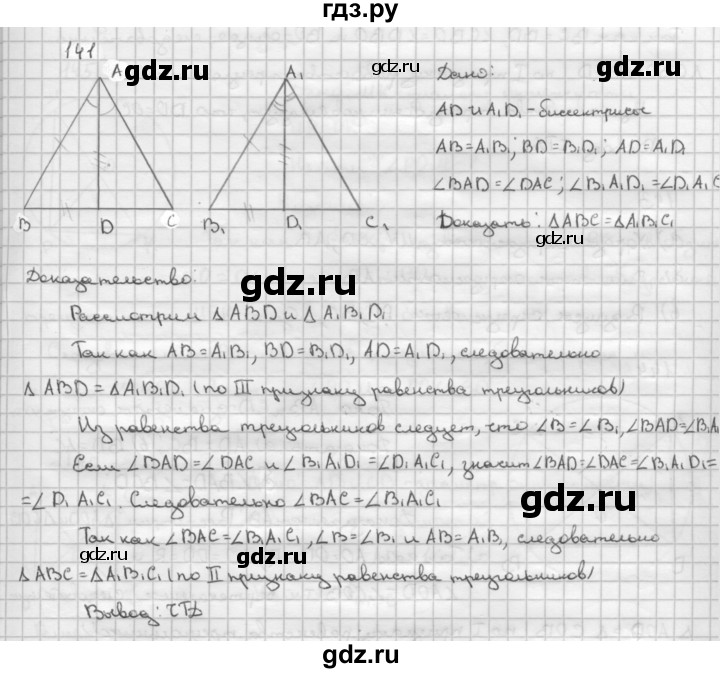 гдз.ру
141
A
A₁
B
D
C
B₁
D₁
C₁
gdz.ru
gdz.ru
gdz.ru
Дано:
AD и A₁D₁ - биссектрисы
AB = A₁B₁; BD = B₁D₁; AD = A₁D₁
∠BAD = ∠DAC; ∠B₁A₁D₁ = ∠D₁A₁C
Доказать: ΔABC = ΔA₁B₁C₁
gdz.ru
Доказательство:
gdz.ru
Рассмотрим ΔABD и ΔA₁B₁D₁
Так как AB = A₁B₁, BD = B₁D₁, AD = A₁D₁, следовательно
ΔABD = ΔA₁B₁D₁ (по III признаку равенства треугольников)
Из равенства треугольников следует, что ∠B = ∠B₁, ∠BAD = ∠B₁A₁
Если ∠BAD = ∠DAC и ∠B₁A₁D₁ = ∠D₁A₁C₁, значит ∠BAD = ∠DAC = ∠B₁A₁D₁ =
= ∠D₁A₁C₁. Следовательно ∠BAC = ∠B₁A₁C₁
gdz.ru
Так как ∠BAC = ∠B₁A₁C₁, ∠B = ∠B₁ и AB = A₁B₁, следовательно
gdz.ru
ΔABC = ΔA₁B₁C₁ (по II признаку равенства треугольников)
Вывод: ЧТД
gdz.ru
gdz.ru